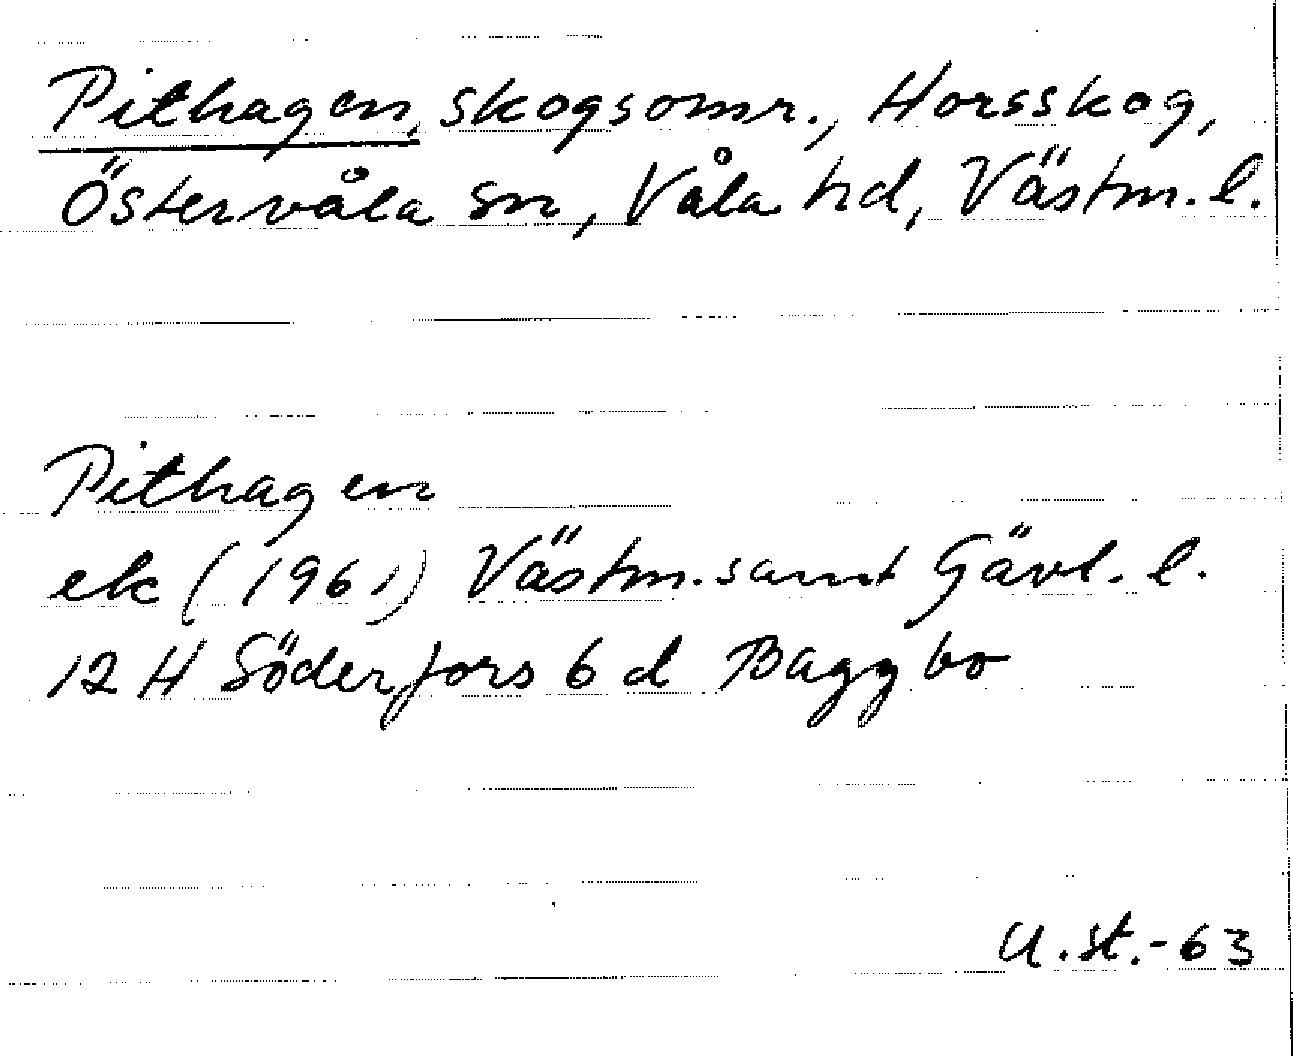 Pithagen, skogsomr., Horsskog,
Östervåla sn, Våla hd, Västm. l.
Pithagen
ek (1961) Västm. samt Gävl. l.
12 H Söderfors 6 d Baggbo
U. st. - 63